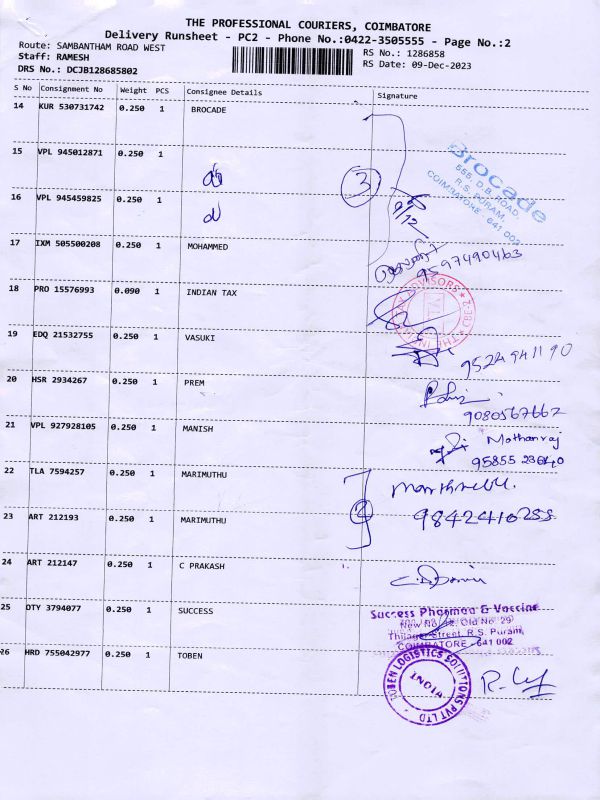 THE PROFESSIONAL COURIERS, COIMBATORE
Delivery Runsheet - PC2 - Phone No.:0422-3505555 - Page No.:2
Route: SAMBANTHAM ROAD WEST
RS No.: 1286858
Staff: RAMESH
RS Date: 09-Dec-2023
DRS No.: DCJB128685802
S No Consignment No Weight PCS Consignee Details Signature
14 KUR 530731742 0.250 1 BROCADE
Brocade
555, D.B. ROAD,
R.S. PURAM,
COIMBATORE - 641 002
15 VPL 945012871 0.250 1
3
16 VPL 945459825 0.250 1
9/12
17 IXM 505500208 0.250 1 MOHAMMED
18 PRO 15576993 0.090 1 INDIAN TAX
19 EDQ 21532755 0.250 1 VASUKI
9524941190
20 HSR 2934267 0.250 1 PREM
9080567662
21 VPL 927928105 0.250 1 MANISH
Mothanraj
95855 23640
22 TLA 7594257 0.250 1 MARIMUTHU
23 ART 212193 0.250 1 MARIMUTHU
24 ART 212147 0.250 1 C PRAKASH
25 DTY 3794077 0.250 1 SUCCESS
Success Pharmaa & Vaccine
New No. 42, Old No. 29
Thilagar Street, R.S. Puram,
COIMBATORE - 641 002
26 HRD 755042977 0.250 1 TOBEN
TOBEN LOGISTICS SOLUTIONS PVT LTD
INDIA